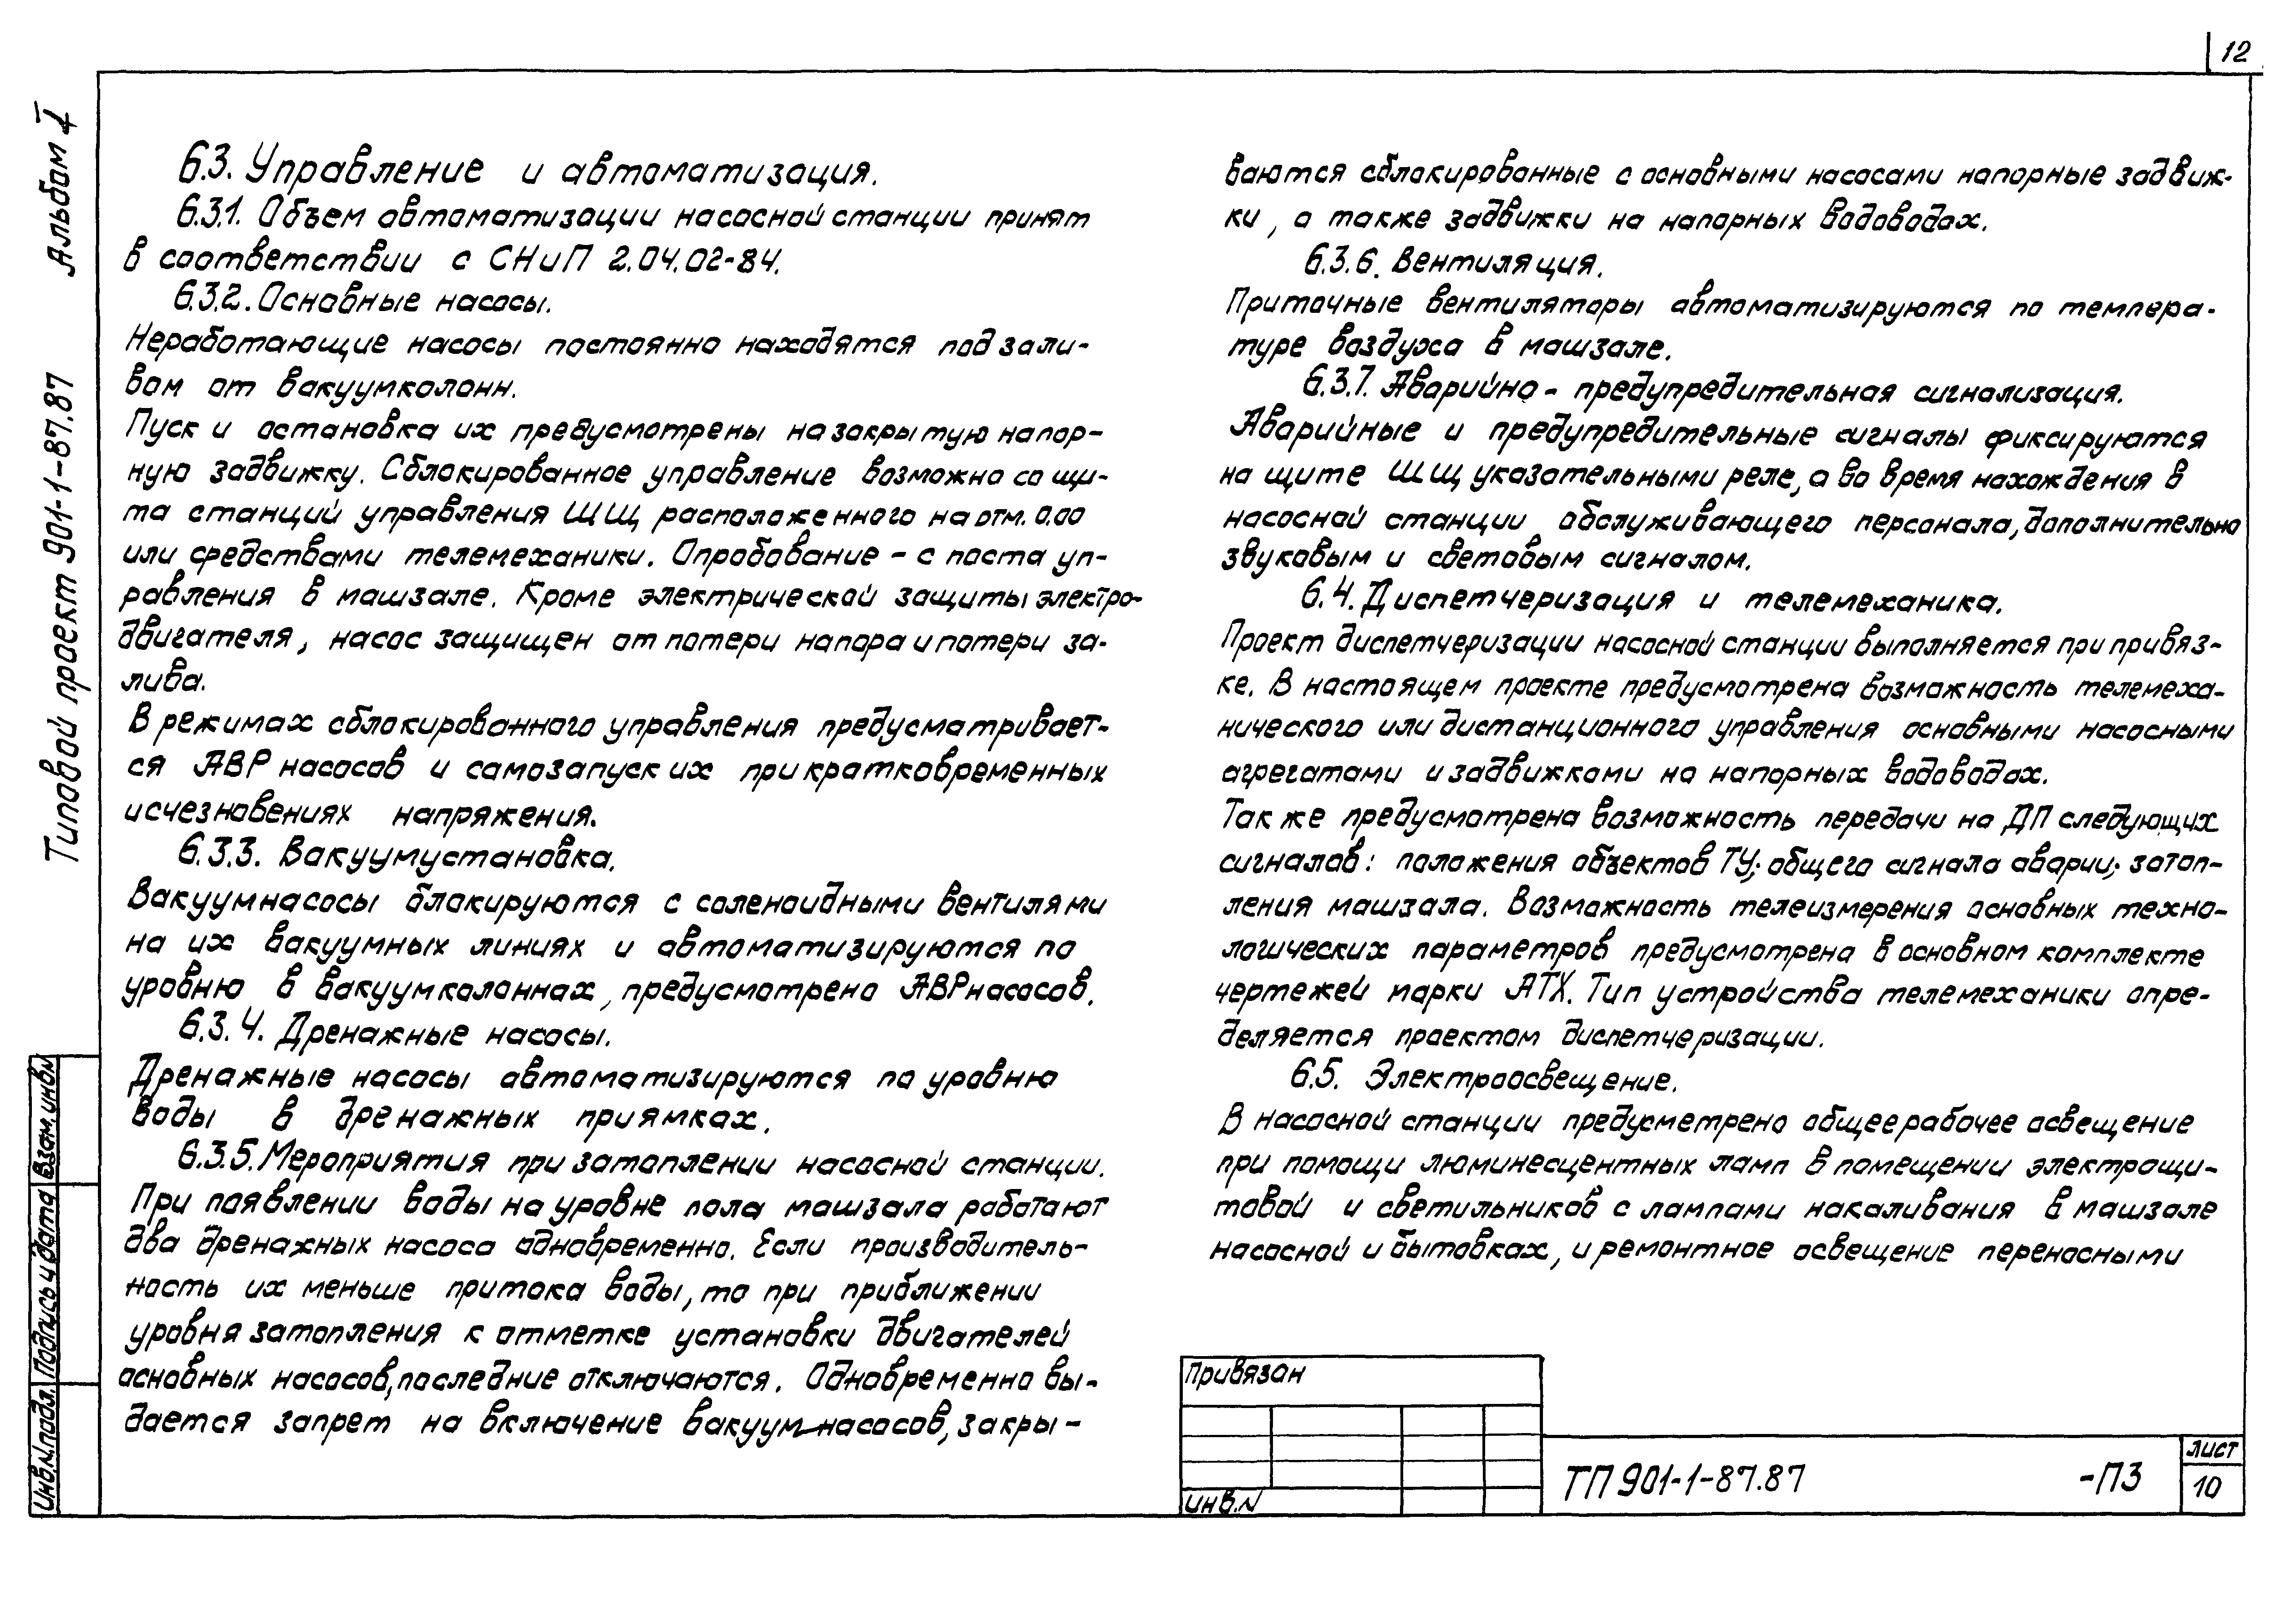 12
Альбом I
Типовой проект 901-1-87.87
6.3. Управление и автоматизация.
6.3.1. Объем автоматизации насосной станции принят
в соответствии с СНиП 2.04.02-84.
6.3.2. Основные насосы.
Неработающие насосы постоянно находятся под зали-
вом от вакуумколонн.
Пуск и остановка их предусмотрены на закрытую напор-
ную задвижку. Сблокированное управление возможно со щи-
та станций управления ШЩ, расположенного на отм. 0.00
или средствами телемеханики. Опробование - с поста уп-
равления в машзале. Кроме электрической защиты электро-
двигателя, насос защищен от потери напора и потери за-
лива.
В режимах сблокированного управления предусматривает-
ся АВР насосов и самозапуск их при кратковременных
исчезновениях напряжения.
6.3.3. Вакуумустановка.
Вакуумнасосы блокируются с соленоидными вентилями
на их вакуумных линиях и автоматизируются по
уровню в вакуумколоннах, предусмотрено АВР насосов.
6.3.4. Дренажные насосы.
Дренажные насосы автоматизируются по уровню
воды в дренажных приямках.
6.3.5. Мероприятия при затоплении насосной станции.
При появлении воды на уровне пола машзала работают
два дренажных насоса одновременно. Если производитель-
ность их меньше притока воды, то при приближении
уровня затопления к отметке установки двигателей
основных насосов, последние отключаются. Одновременно вы-
дается запрет на включение вакуум-насосов, закры-
ваются сблокированные с основными насосами напорные задвиж-
ки, а также задвижки на напорных водоводах.
6.3.6. Вентиляция.
Приточные вентиляторы автоматизируются по темпера-
туре воздуха в машзале.
6.3.7. Аварийно - предупредительная сигнализация.
Аварийные и предупредительные сигналы фиксируются
на щите ШЩ указательными реле, а во время нахождения в
насосной станции обслуживающего персонала, дополнительно
звуковым и световым сигналом.
6.4. Диспетчеризация и телемеханика.
Проект диспетчеризации насосной станции выполняется при привяз-
ке. В настоящем проекте предусмотрена возможность телемеха-
нического или дистанционного управления основными насосными
агрегатами и задвижками на напорных водоводах.
Так же предусмотрена возможность передачи на ДП следующих
сигналов: положения объектов ТУ; общего сигнала аварии; затоп-
ления машзала. Возможность телеизмерения основных техно-
логических параметров предусмотрена в основном комплекте
чертежей марки АТХ. Тип устройства телемеханики опре-
деляется проектом диспетчеризации.
6.5. Электроосвещение.
В насосной станции предусметрено общее рабочее освещение
при помощи люминесцентных ламп в помещении электрощи-
товой и светильников с лампами накаливания в машзале
насосной и бытовках, и ремонтное освещение переносными
Инв.N.подл. Подпись и дата Взам.инв.N
Привязан
инв.N
ТП 901-1-87.87 -ПЗ
лист
10